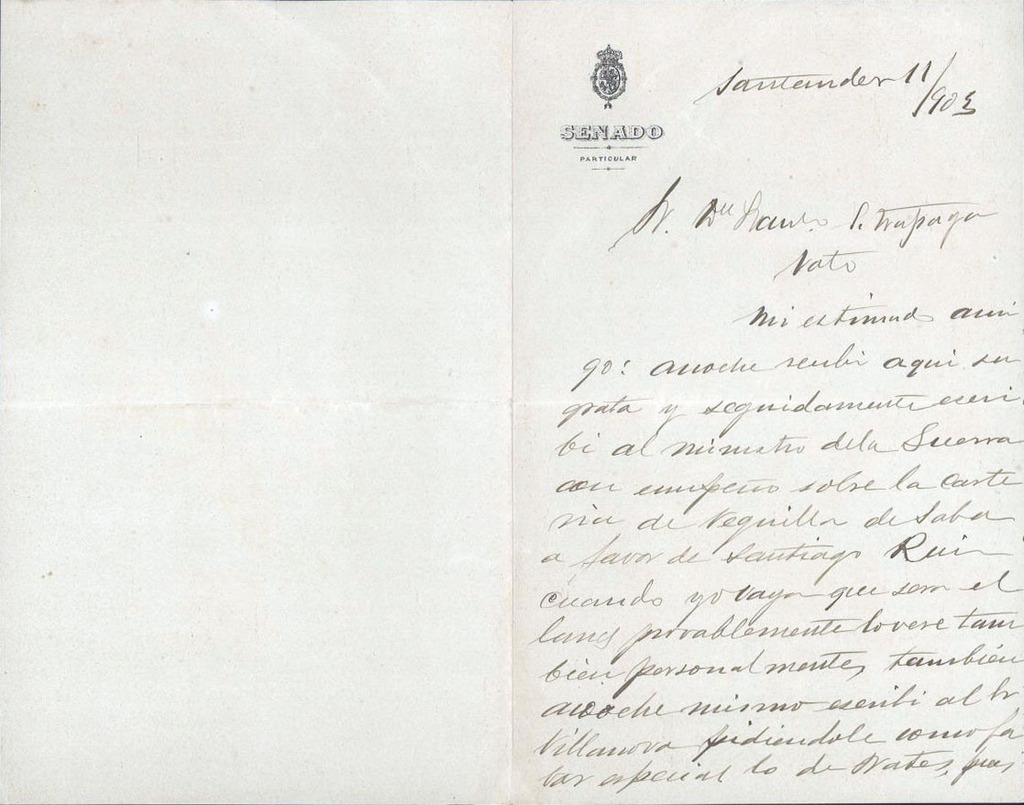 SENADO
PARTICULAR
Santander 11/903
Sr. Dn P. Trapaga
Voto
Mi estimado ami
go: anoche recibi aqui su
grata y seguidamente escri
bi al ministro dela Guerra
con empeño sobre la carte
ria de Veguilla de Soba
a favor de Santiago Ruiz
Cuando yo vaya que sera el
lunes provablemente lo vere tam
bien personalmente, también
anoche mismo escribi al Sr
Villanova pidiendole como fa
vor especial lo de pues